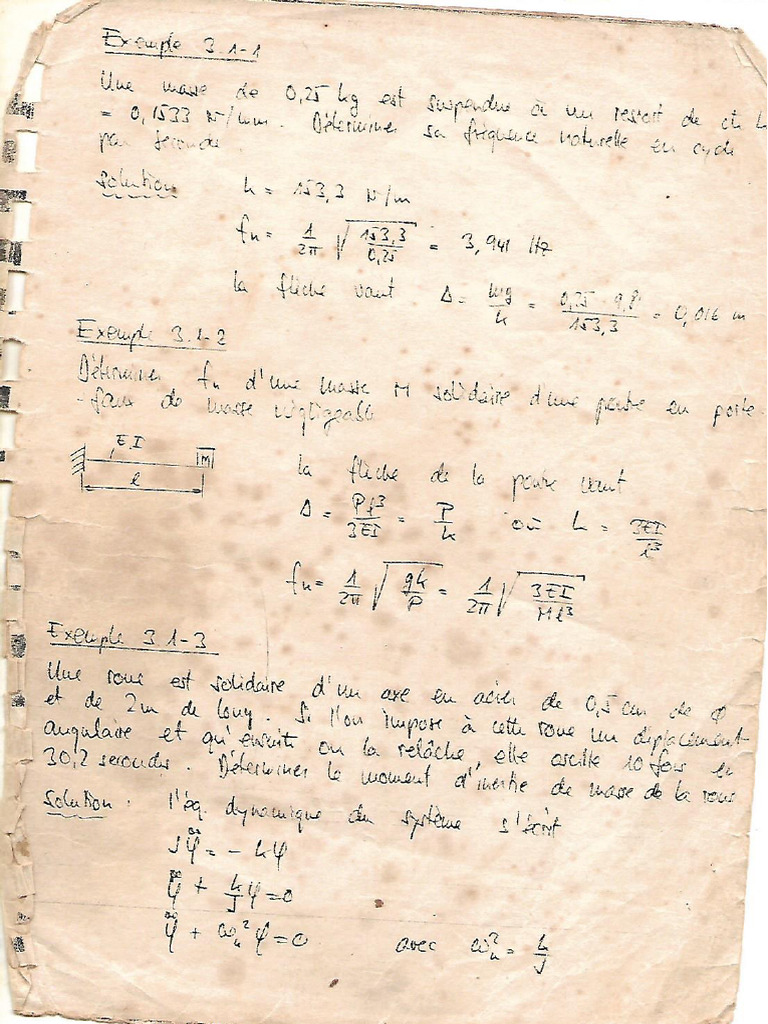 Exemple 3.1-1
Une masse de 0,25 kg est suspendue à un ressort de
= 0,1533 N/mm. Déterminer sa fréquence naturelle en cycle
par seconde
solution k = 153,3 N/m
fn = 1/2π √(153,3/0,25) = 3,941 Hz
la flèche vaut Δ = mg/k = 0,25 · 9,81/153,3 = 0,016 m
Exemple 3.1-2
Déterminer fn d'une masse M solidaire d'une poutre en porte-
-faux de masse négligeable
E,I
M
l
la flèche de la poutre vaut
Δ = Pl³/3EI = P/k où k = 3EI/l³
fn = 1/2π √(gk/P) = 1/2π √(3EI/Ml³)
Exemple 3.1-3
Une roue est solidaire d'un axe en acier de 0,5 cm de φ
et de 2m de long. Si l'on impose à cette roue un déplacement
angulaire et qu'ensuite on la relâche, elle oscille 10 fois en
30,2 secondes. Déterminer le moment d'inertie de masse de la roue
solution : l'éq. dynamique du système s'écrit
Jφ̈ = - kφ
φ̈ + k/J φ = 0
φ̈ + ωn² φ = 0 avec ωn² = k/J